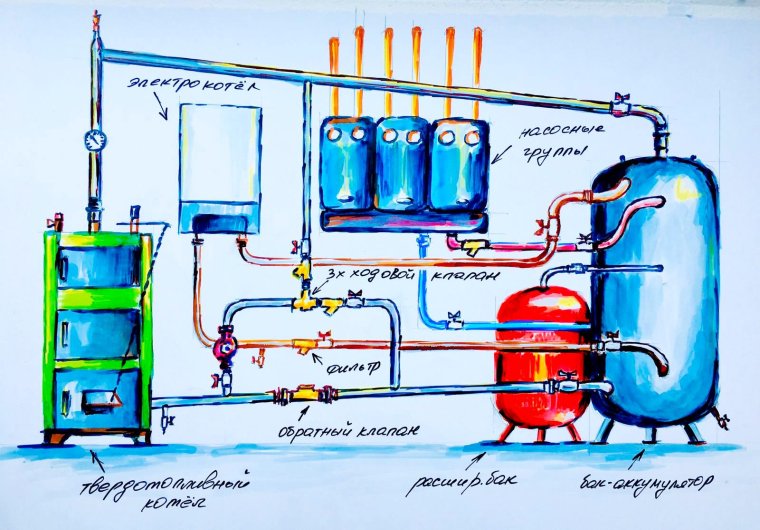 электрокотёл
насосные
группы
3х ходовой клапан
фильтр
обратный клапан
твердотопливный
котёл
расшир.бак
бак-аккумулятор